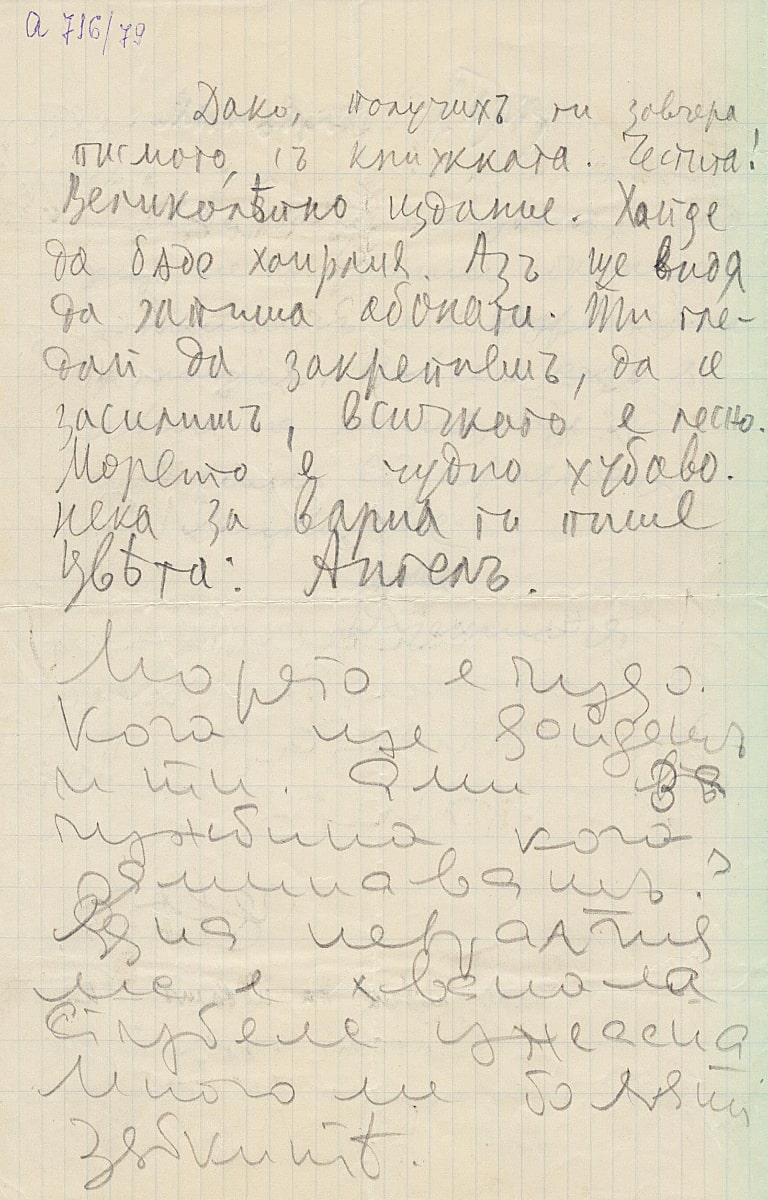 а 716/79
Дако, получихъ ти завчера
писмото, съ книжката. Честита!
Великолѣпно издание. Хайде
да бѫде хаирлия. Азъ ще видя
да запиша абонати. Ти гле-
дай да закрепнешъ, да се
засилишъ, всичкото е лесно.
Морето е чудно хубаво.
нека за Варна ти пише
Цвѣта: Ангелъ.
Морето е чудо.
Кога ще дойдешъ
и ти. Ами въ
чужбина кога
заминавашъ?
Една невралгия
ме е хванала
ужасна
Много ме болятъ
зѫбкитѣ.